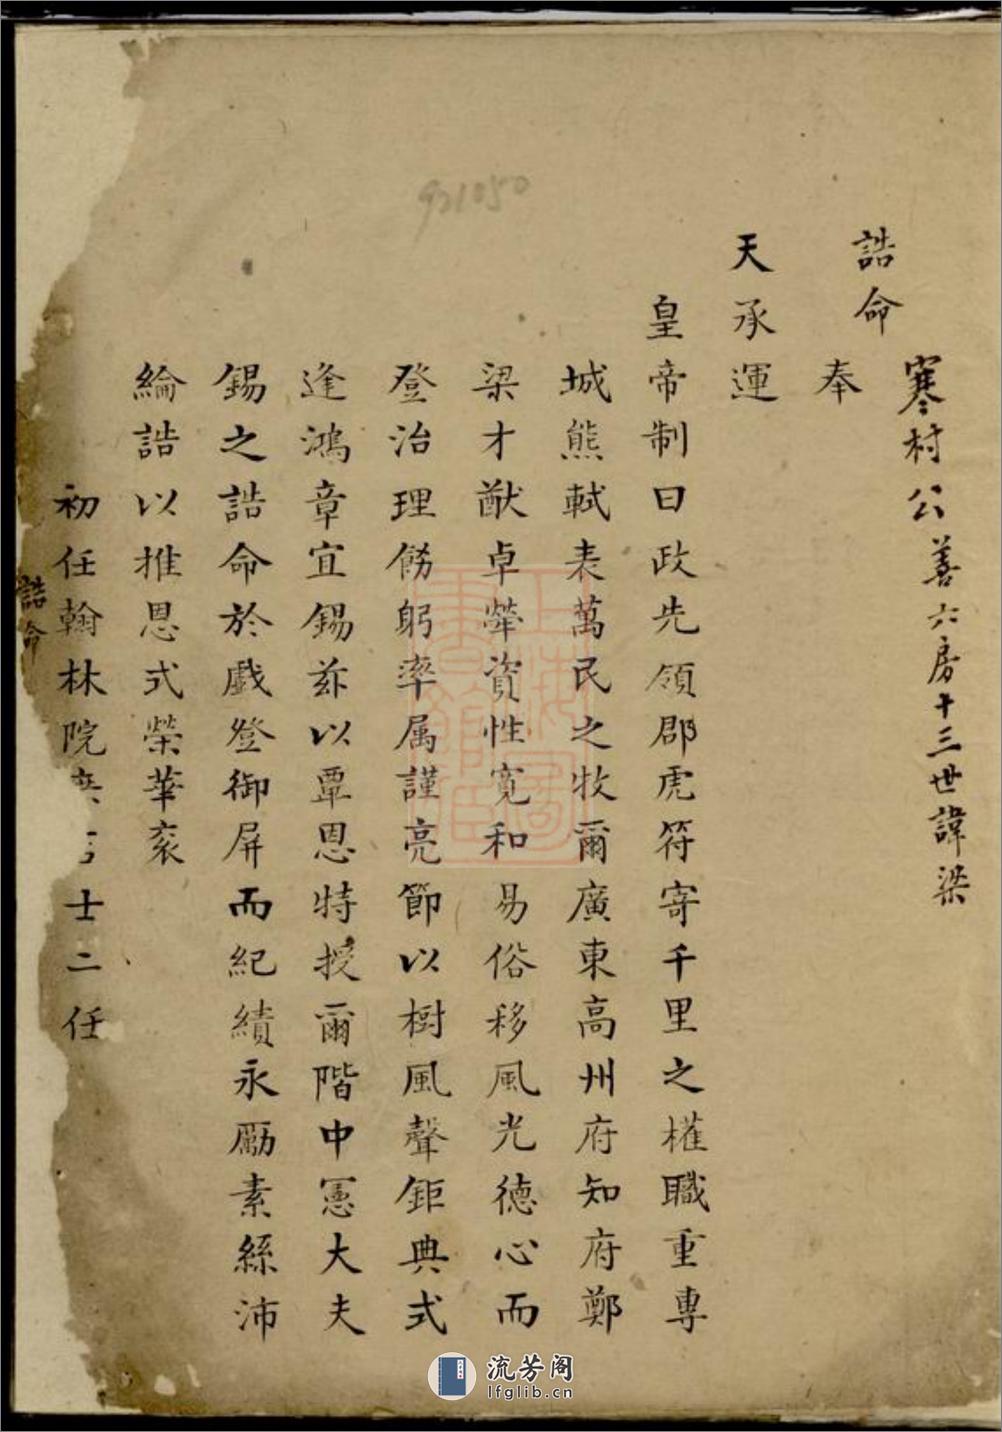 921050
誥命
寒村公善六房十三世諱梁
奉
天承運
皇帝制曰政先領郡虎符寄千里之權職重專
城熊軾表萬民之牧爾廣東高州府知府鄭
梁才猷卓犖資性寬和易俗移風光德心而
登治理飭躬率属謹亮節以樹風聲鉅典式
逢鴻章宜錫茲以覃恩特授爾階中憲大夫
錫之誥命於戲登御屏而紀績永勵素絲沛
綸誥以推恩式榮華袞
初任翰林院士二任
誥命
上海圖書館藏
流芳阁
lfglib.cn